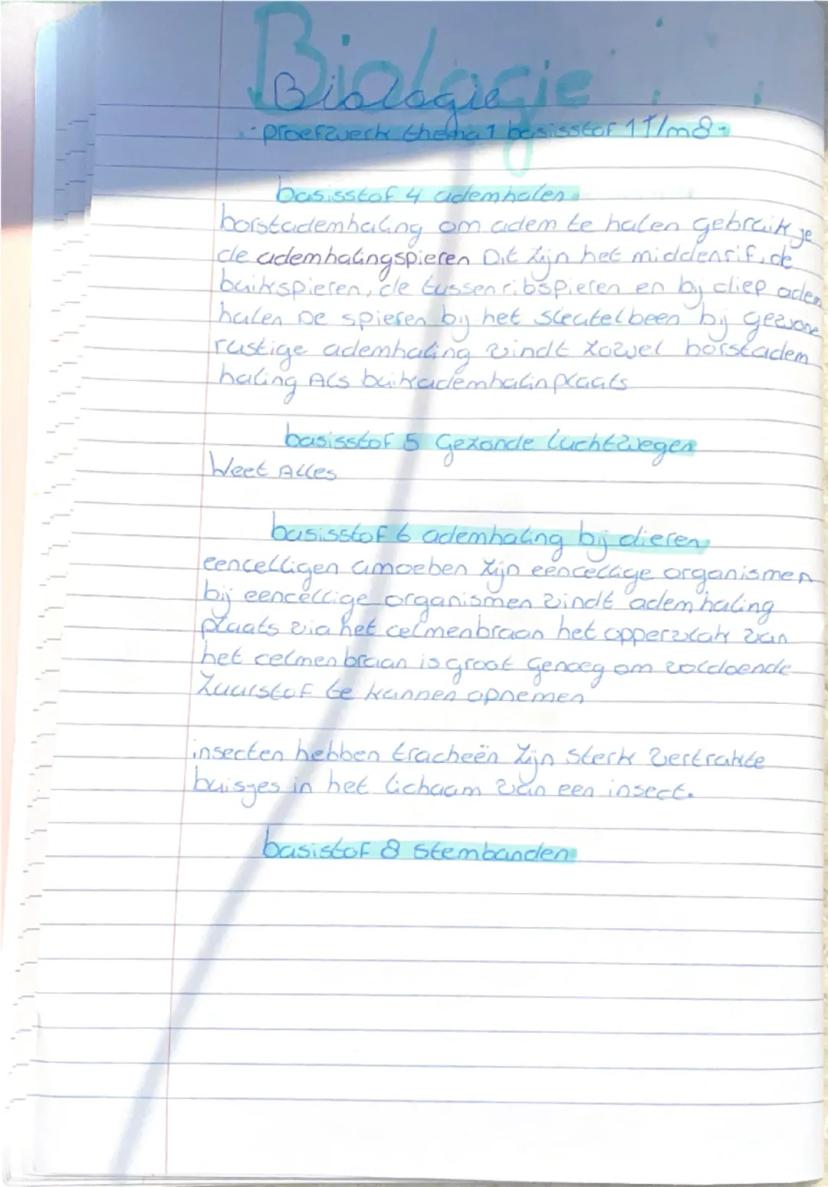 Biologie
Biologie
- proefwerk thema 1 basisstof 1 T/m 8 -
basisstof 4 ademhalen
borstademhaling om adem te halen gebruik je
de ademhalingspieren Dit zijn het middenrif, de
buikspieren, de tussenribspieren en bij diep adem
halen De spieren bij het sleutelbeen bij gewone
rustige ademhaling vindt zowel borstadem
haling Als buikademhalin plaats
basisstof 5 Gezonde luchtwegen
Weet Alles
basisstof 6 ademhaling bij dieren
eencelligen amoeben zijn eencellige organismen
bij eencellige organismen vindt ademhaling
plaats via het celmenbraan het oppervlak van
het celmenbraan is groot genoeg om voldoende
zuurstof te kunnen opnemen
insecten hebben tracheën zijn sterk vertrakte
buisjes in het lichaam van een insect.
basistof 8 stembanden